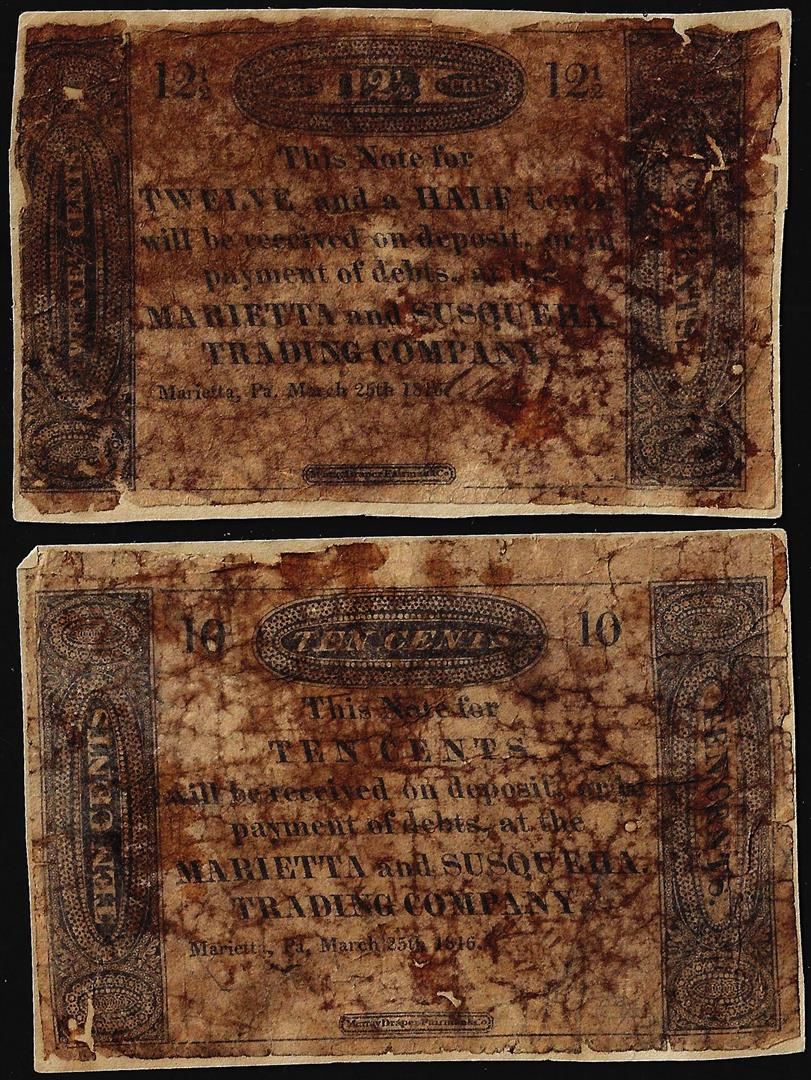 12½ 12½ 12½
This Note for
TWELVE and a HALF Cents
will be received on deposit, or in
payment of debts, at the
MARIETTA and SUSQUEHA.
TRADING COMPANY.
Marietta, Pa. March 25th 1816.
Murray Draper Fairman & Co
CENTS
10 TEN CENTS 10
This Note for
TEN CENTS
will be received on deposit, or in
payment of debts, at the
MARIETTA and SUSQUEHA.
TRADING COMPANY.
Marietta, Pa. March 25th 1816.
Murray Draper Fairman & Co
TEN CENTS
TEN CENTS.